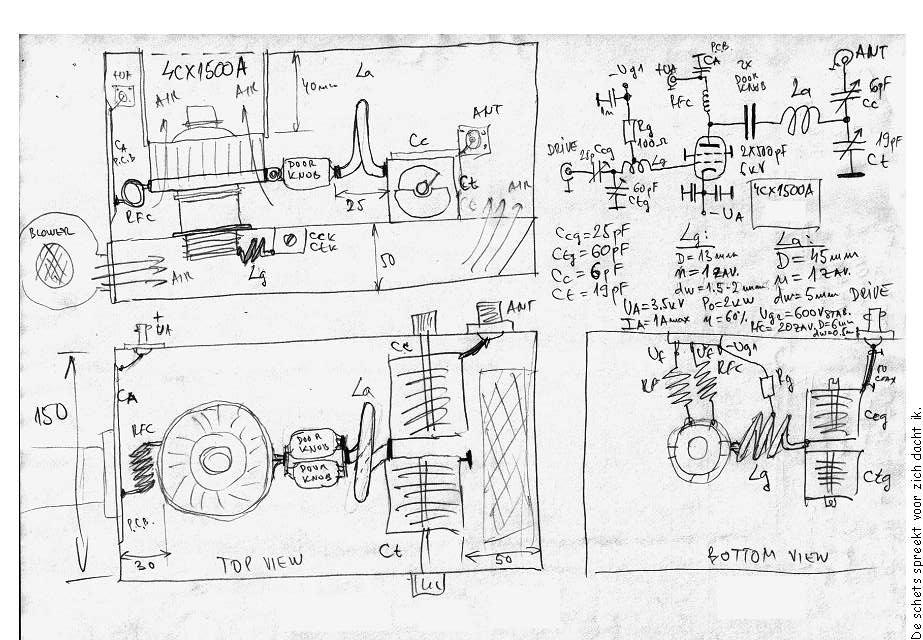 +UA
4CX1500A
AIR
AIR
40mm
La
ANT
CA
P.C.B
RFC
DOOR
KNOB
Cc
Ct
25
AIR
BLOWER
AIR
Lg
50
-Ug1
+UA
P.C.B.
CA
2x
DOOR
KNOB
ANT
RFC
La
6pF
Cc
1n
Rg
100Ω
DRIVE
25p
Ccg
Lg
60pF
Ctg
2x500pF
5kV
19pF
Ct
-UA
4CX1500A
Ccg = 25pF
Ctg = 60pF
Cc = 6pF
Ct = 19pF
Lg:
D = 13mm
n = 1 ZAV.
dw = 1.5-2mm
La:
D = 45mm
n = 1 ZAV.
dw = 5mm
UA = 3.5kV
Po = 2kW
IA = 1A max
η = 60%
Ug2 = 600V STAB.
RFC = 20ZAV. D=6mm
DRIVE
+
UA
ANT
150
CA
RFC
P.C.B.
30
DOOR
KNOB
DOOR
KNOB
La
Cc
Ct
50
TOP VIEW
Uf
Uf
-Ug1
RFC
RFC
Rg
COAX
Ccg
Lg
Ctg
BOTTOM VIEW
De schets spreekt voor zich dacht ik.